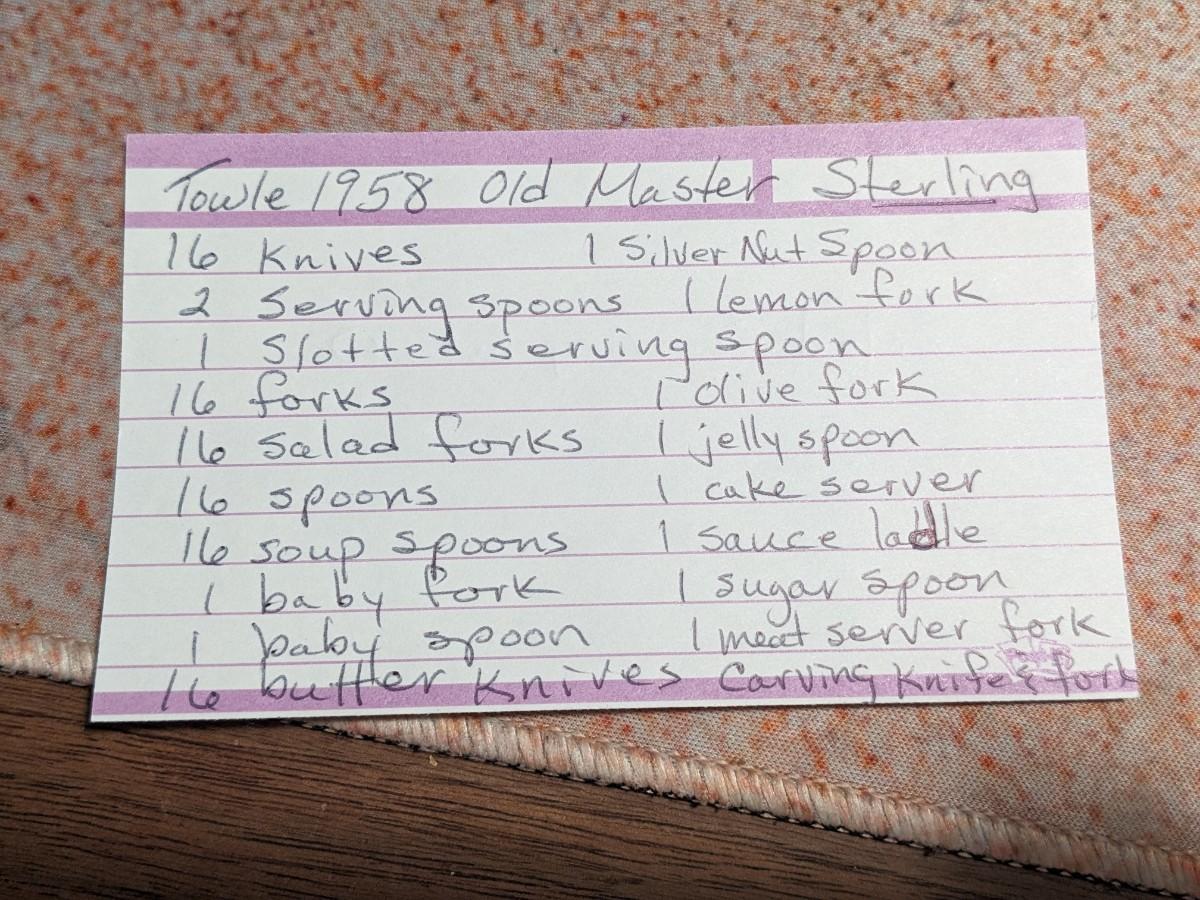 Towle 1958 Old Master Sterling
16 Knives 1 Silver Nut Spoon
2 Serving spoons 1 lemon fork
1 Slotted serving spoon
16 forks 1 olive fork
16 Salad forks 1 jelly spoon
16 spoons 1 cake server
16 soup spoons 1 sauce laddle
1 baby fork 1 sugar spoon
1 baby spoon 1 meat server fork
16 butter Knives Carving Knife & fork